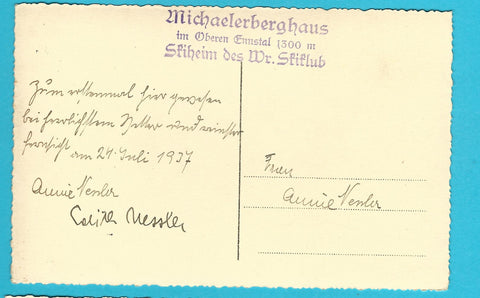 Michaelerberghaus
im Oberen Ennstal 1300 m
Skiheim des Wr. Skiklub
Zum erstenmal hier gewesen
bei herrlichstem Wetter und reinster
Fernsicht am 21. Juli 1937
Annie Nessler
Edith Nessler
Frau
Annie Nessler